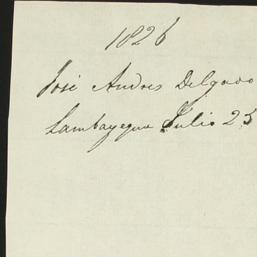 1826
José Andres Delgado
Lambayeque Julio 25